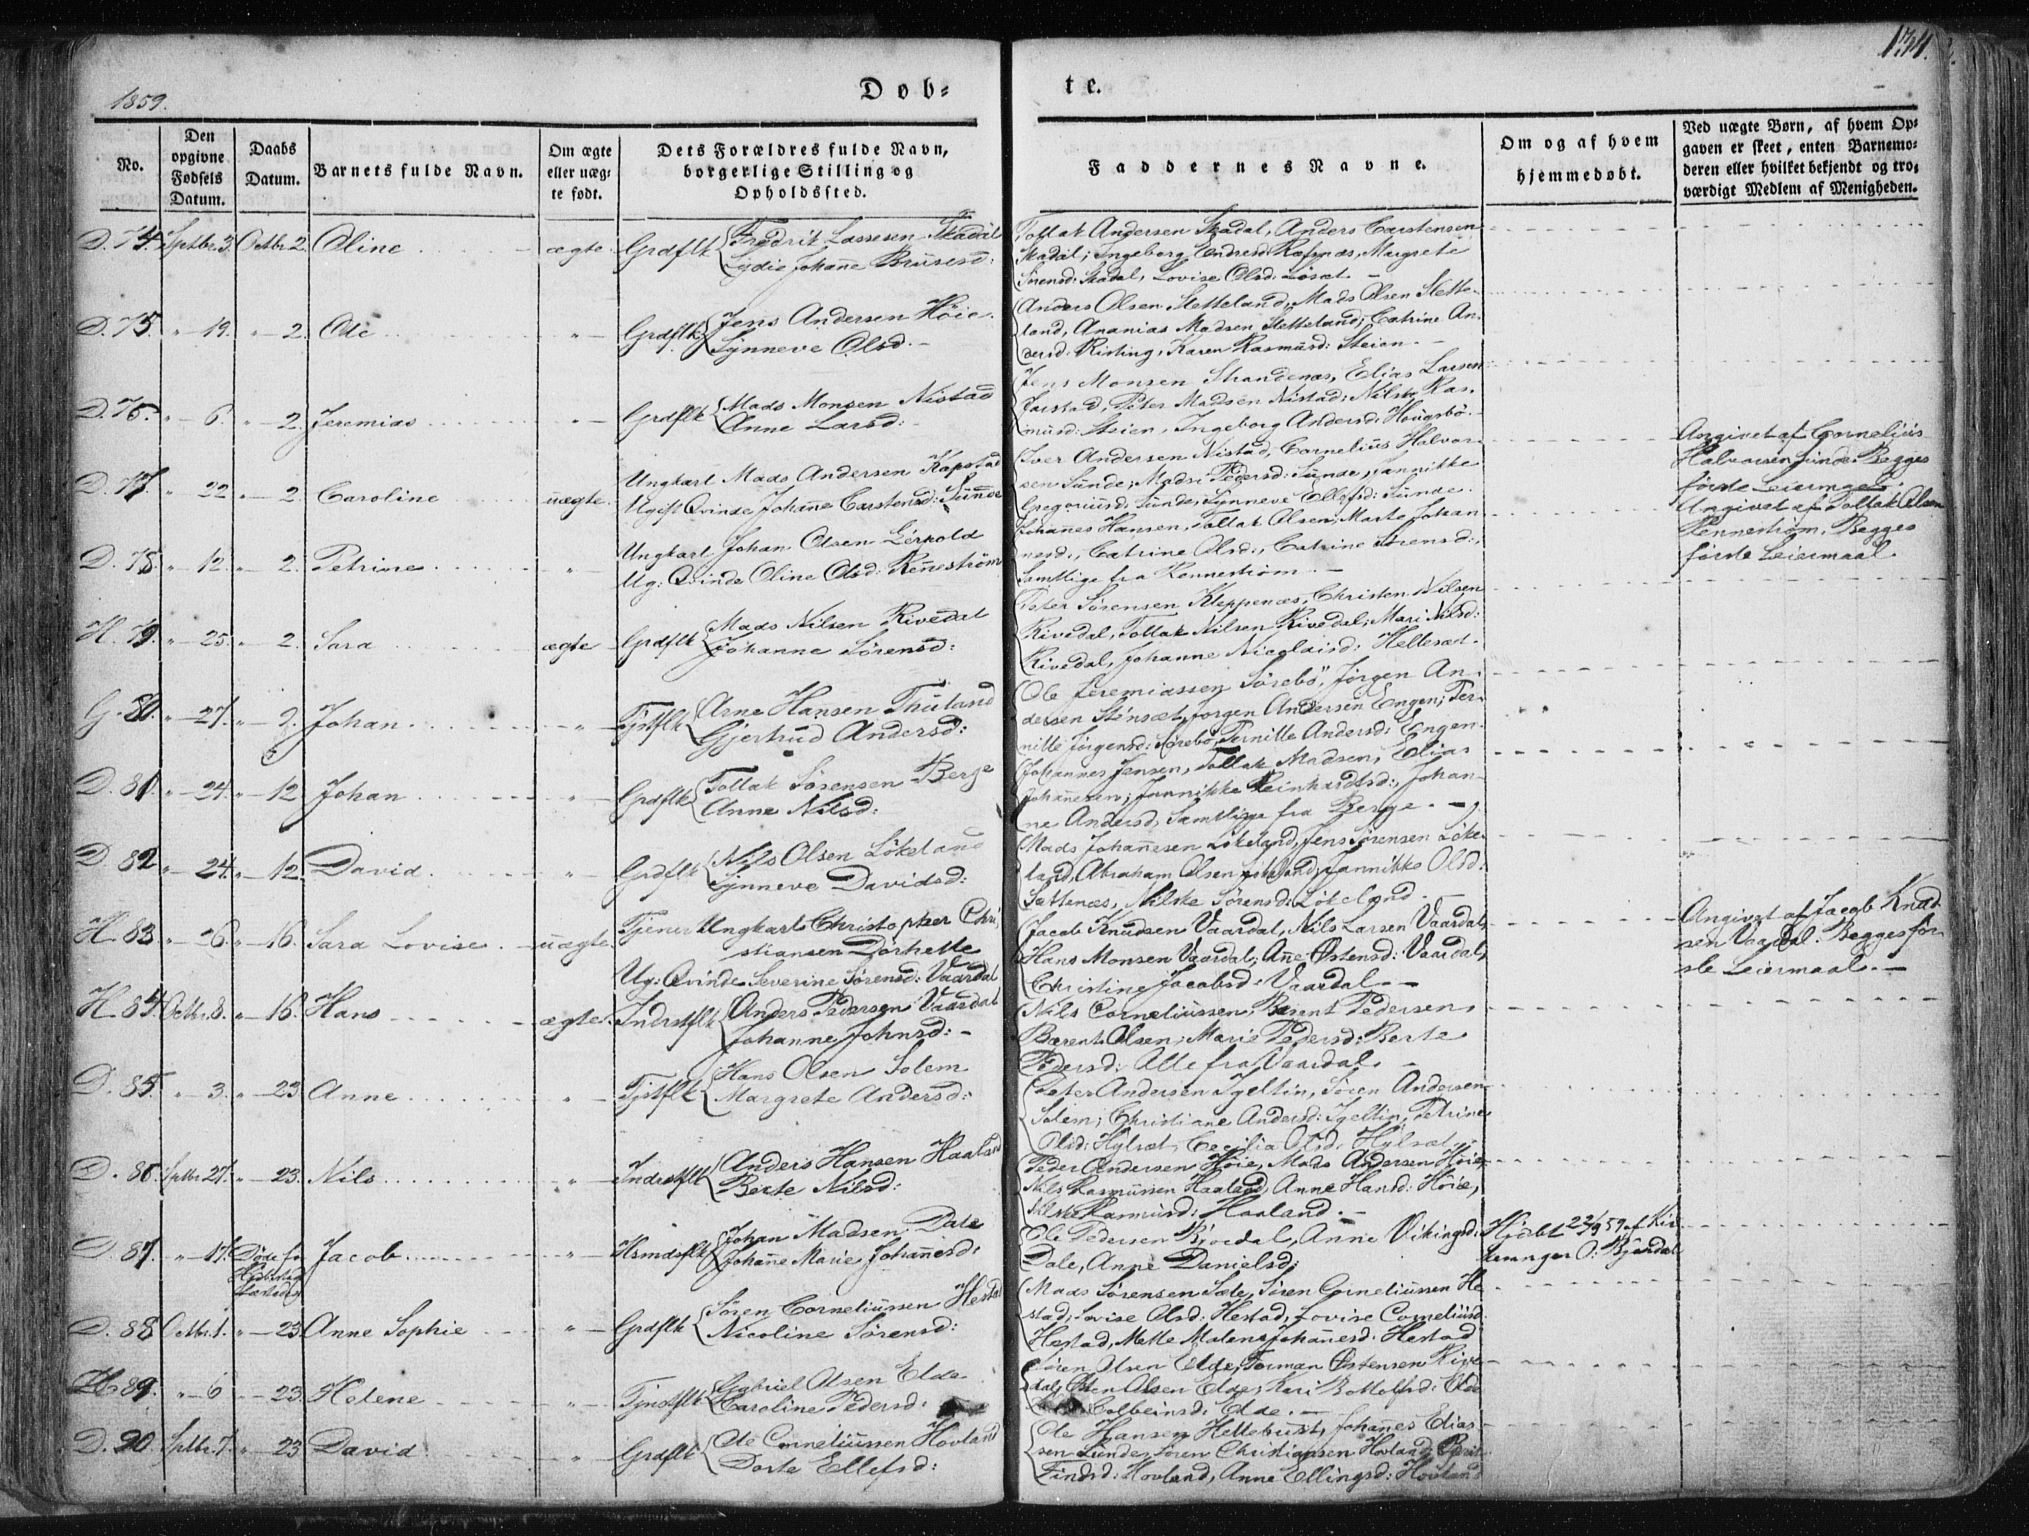 1859.
Døb-
te.
134.
No.
Den opgivne Fødsels Datum.
Daabs Datum.
Barnets fulde Navn.
Om ægte eller uæg-te født.
Dets Forældres fulde Navn, borgerlige Stilling og Opholdssted.
Faddernes Navne.
Om og af hvem hjemmedøbt.
Ved uægte Børn, af hvem Op-gaven er skeet, enten Barnemo-deren eller hvilket bekjendt og tro-værdigt Medlem af Menigheden.
D. 74. Sptbr. 3. Octbr. 2. Oline ægte Grdflk Fredrik Lassesen Skadal
Lydie Johanne
Tollak Andersen Skadal, Anders Carstensen
Skadal; Ingeborg Endresd: Margrete
Skadal, Lovise Olsd:
D. 75. " 19. " 2. Ole " Grdflk Jens Andersen Höie.
Synneve Olsd.
Anders Olsen Stetteland, Mads Olsen Stette-
land, Ananias Madsen Stetteland; Catrine An-
dersd: Risting, Karen Rasmusd: Steien.
D. 76. " 6. " 2. Jeremias " Grdflk Mads Monsen Nistad
Anne Larsd:
Jens Monsen Strandenæs, Elias Larsen
Farstad, Peter Madsen Nistad; Nilske Ras-
musd: Steien, Ingeborg Andersd: Hougsbö.
D. 77. " 22. " 2. Caroline uægte. Ungkarl Mads Andersen Kapstad
Ugift Qvinde Johanne Carstensd: Sunde
Iver Andersen Nistad, Cornelius Halvor-
sen Sunde; Pedersd: Sunde, Jannikke
Gregoriusd: Sunde, Synneve Ellefsd: Sunde.
Angivet af Cornelius
Halvorsen Sunde. Begges
første Leiermaal.
D. 78. " 12. " 2. Petrine " Ungkarl Johan Olsen
Ug: Qvinde Oline Olsd: Renneström
Johannes Hansen, Tollak Olsen, Marte Johan-
nesd:, Catrine Olsd:, Catrine Sörensd:,
Samtlige fra Renneström.
Angivet af Tollak Olsen
Renneström. Begges
første Leiermaal.
H. 79. " 25. " 2. Sara ægte Grdflk Mads Nilsen Rivedal
Johanne Sörensd:
Peter Sörensen Kleppenæs, Christen Nilsen
Rivedal, Tollak Nilsen Rivedal; Mari Nilsd:
Rivedal, Johanne Nicolaisd: Hellesæt.
G. 80. " 27. " 9. Johan " Tjstflk Arne Hansen Thuland
Gjertrud Andersd:
Ole Jeremiassen Sörebö, Jörgen An-
dersen Jörgen Andersen Engen; Per-
nille Jörgensd: Sörebö, Pernille Andersd: Engen.
D. 81. " 24. " 12. Johan " Grdflk Tollak Sörensen Berge
Anne Nilsd:
Johannes Jensen, Tollak Madsen, Elias
Johannesen; Jannikke Reinhardtsd:, Johan-
ne Andersd, Samtlige fra Berge.
D. 82. " 24. " 12. David " Grdflk Nils Olsen Lökeland
Synneve Davidsd:
Mads Johannesen Lökeland, Jens Sörensen Löke-
land, Abraham Olsen Jannikke Olsd:
Sættenæs, Nilske Sörensd: Lökeland.
H. 83. " 26. " 16. Sara Lovise uægte Tjener Ungkarl Christopher Chri-
stiansen Dorhelle
Ug: Qvinde Severine Sörensd: Vaardal
Jacob Knudsen Vaardal, Nils Larsen Vaardal,
Hans Monsen Vaardal; Anne Østensd: Vaardal,
Christine Jacobsd: Vaardal
Angivet af Jacob Knud-
sen Vaardal. Begges før-
ste Leiermaal.
H. 84. Octbr. 8. " 16. Hans ægte. Inderstflk Anders Pedersen Vaardal
Johanne Johnsd:
Nils Corneliussen, Berent Pedersen,
Berent Olsen; Marie Pedersd: Berte
Pedersd: Alle fra Vaardal.
D. 85. " 3. " 23. Anne " Tjstflk Hans Olsen Solem
Margrete Andersd:
Peter Andersen Igeltin, Sören Andersen
Solem; Christiane Andersd: Igeltin, Petrine
Olsd: Hylsæt, Cecilia Olsd: Hylsæt.
D. 86. Sptbr. 27. " 23. Nils " Inderstflk Anders Hansen Haaland
Berte Nilsd:
Peder Andersen Höie, Mads Andersen Höie,
Nils Rasmussen Haaland, Anne Hansd: Höie,
Nilske Rasmusd: Haaland.
D. 87. " 17. Døde før
Jacob " Hsmdsflk Johan Madsen Dale
Johanne Marie Johannesd:
Ole Pedersen Bjordal, Anne Vikingsd:
Dale, Anne Danielsd:
Hjdøbt 22/9 59 af Kir-
kesanger O: Bjordal
D. 88. Octbr. 1. " 23. Anne Sophie " Grdflk Sören Corneliussen Hestad
Nicoline Sörensd:
Mads Sörensen Sæle, Sören Corneliussen He-
stad; Lovise Olsd: Hestad, Lovise Corneliusd:
Hestad, Mette Malene Johannesd: Hestad
H. 89. " 6 " 23. Helene " Tjnstflk Gabriel Olsen Elde
Caroline Pedersd:
Sören Olsen Elde, Torman Østensen Rive-
dal, Olsen Elde; Kari Bottolfsd: Elde
Colbeinsd: Elde.
D. 90. Sptbr. 7. " 23. David " Grdflk Ole Corneliussen Hovland
Dorte Ellefsd:
Ole Hansen Hellebust, Johannes Elias-
sen Sunde, Sören Christiansen Hovland; Berit
Findsd: Hovland, Anne Ellingsd: Hovland